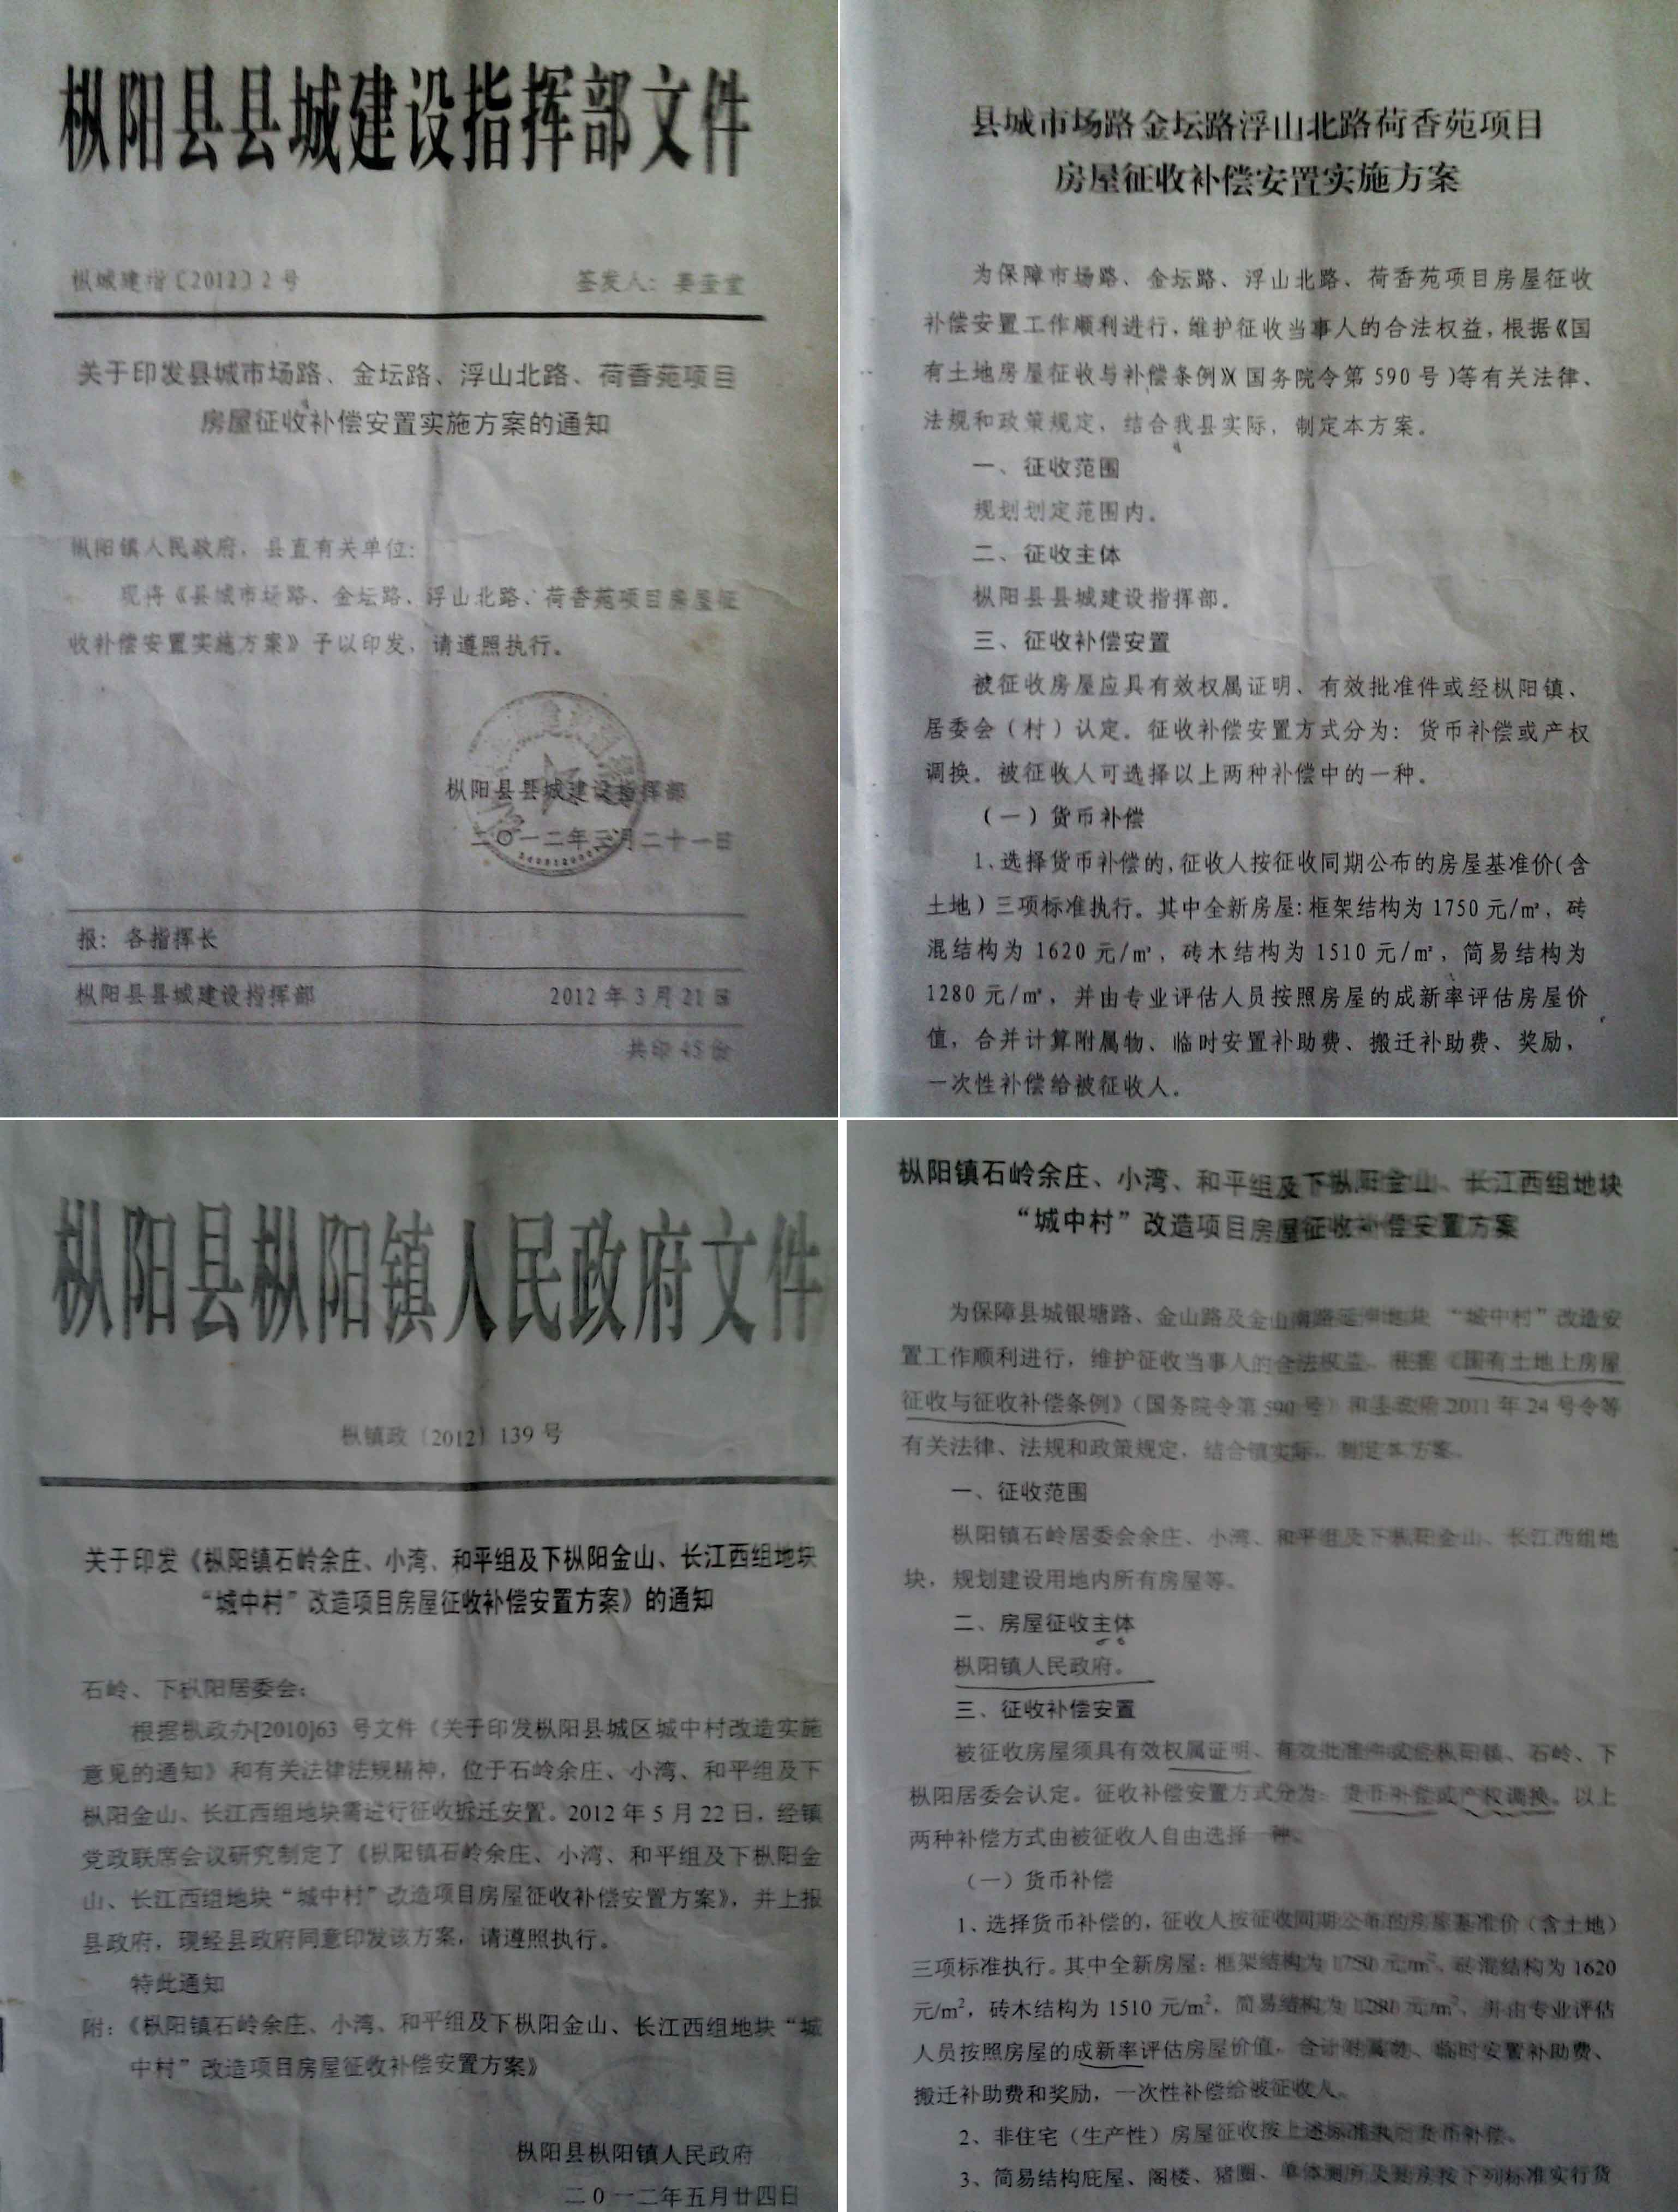 枞阳县县城建设指挥部文件
枞城建指〔2012〕2号
签发人：
关于印发县城市场路、金坛路、浮山北路、荷香苑项目
房屋征收补偿安置实施方案的通知
枞阳镇人民政府，县直有关单位：
现将《县城市场路、金坛路、浮山北路、荷香苑项目房屋征
收补偿安置实施方案》予以印发，请遵照执行。
枞阳县县城建设指挥部
二〇一二年三月二十一日
报：各指挥长
枞阳县县城建设指挥部
2012年3月21日
共印45份
县城市场路金坛路浮山北路荷香苑项目
房屋征收补偿安置实施方案
为保障市场路、金坛路、浮山北路、荷香苑项目房屋征收
补偿安置工作顺利进行，维护征收当事人的合法权益，根据《国
有土地房屋征收与补偿条例》(国务院令第590号)等有关法律、
法规和政策规定，结合我县实际，制定本方案。
一、征收范围
规划划定范围内。
二、征收主体
枞阳县县城建设指挥部。
三、征收补偿安置
被征收房屋应具有效权属证明、有效批准件或经枞阳镇、
居委会（村）认定。征收补偿安置方式分为：货币补偿或产权
调换。被征收人可选择以上两种补偿中的一种。
（一）货币补偿
1、选择货币补偿的，征收人按征收同期公布的房屋基准价（含
土地）三项标准执行。其中全新房屋：框架结构为1750元/㎡，砖
混结构为1620元/㎡，砖木结构为1510元/㎡，简易结构为
1280元/㎡，并由专业评估人员按照房屋的成新率评估房屋价
值，合并计算附属物、临时安置补助费、搬迁补助费、奖励，
一次性补偿给被征收人。
枞阳县枞阳镇人民政府文件
枞镇政〔2012〕139号
关于印发《枞阳镇石岭余庄、小湾、和平组及下枞阳金山、长江西组地块
“城中村”改造项目房屋征收补偿安置方案》的通知
石岭、下枞阳居委会：
根据枞政办[2010]63号文件《关于印发枞阳县城区城中村改造实施
意见的通知》和有关法律法规精神，位于石岭余庄、小湾、和平组及下
枞阳金山、长江西组地块需进行征收拆迁安置。2012年5月22日，经镇
党政联席会议研究制定了《枞阳镇石岭余庄、小湾、和平组及下枞阳金
山、长江西组地块“城中村”改造项目房屋征收补偿安置方案》，并上报
县政府，现经县政府同意印发该方案，请遵照执行。
特此通知
附：《枞阳镇石岭余庄、小湾、和平组及下枞阳金山、长江西组地块“城
中村”改造项目房屋征收补偿安置方案》
枞阳县枞阳镇人民政府
二0一二年五月廿四日
枞阳镇石岭余庄、小湾、和平组及下枞阳金山、长江西组地块
“城中村”改造项目房屋征收补偿安置方案
为保障县城银塘路、金山路及金山南路延伸地块“城中村”改造安
置工作顺利进行，维护征收当事人的合法权益，根据《国有土地上房屋
征收与征收补偿条例》（国务院令第590号）和县政府2011年24号令等
有关法律、法规和政策规定，结合镇实际，制定本方案。
一、征收范围
枞阳镇石岭居委会余庄、小湾、和平组及下枞阳金山、长江西组地
块，规划建设用地内所有房屋等。
二、房屋征收主体
枞阳镇人民政府。
三、征收补偿安置
被征收房屋须具有效权属证明、有效批准件或经枞阳镇、石岭、下
枞阳居委会认定。征收补偿安置方式分为：货币补偿或产权调换。以上
两种补偿方式由被征收人自由选择一种。
（一）货币补偿
1、选择货币补偿的，征收人按征收同期公布的房屋基准价（含土地）
三项标准执行。其中全新房屋：框架结构为1750元/m²，砖混结构为1620
元/m²，砖木结构为1510元/m²，简易结构为1280元/m²，并由专业评估
人员按照房屋的成新率评估房屋价值，合计附属物、临时安置补助费、
搬迁补助费和奖励，一次性补偿给被征收人。
2、非住宅（生产性）房屋征收按上述标准执行货币补偿。
3、简易结构庇屋、阁楼、猪圈、单体厕所按下列标准实行货